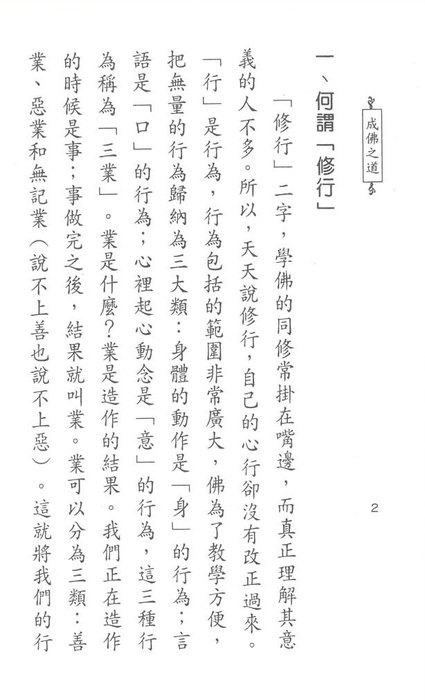 成佛之道
一、何謂「修行」
「修行」二字，學佛的同修常掛在嘴邊，而真正理解其意
義的人不多。所以，天天說修行，自己的心行卻沒有改正過來。
「行」是行為，行為包括的範圍非常廣大，佛為了教學方便，
把無量的行為歸納為三大類：身體的動作是「身」的行為；言
語是「口」的行為；心裡起心動念是「意」的行為，這三種行
為稱為「三業」。業是什麼？業是造作的結果。我們正在造作
的時候是事；事做完之後，結果就叫業。業可以分為三類：善
業、惡業和無記業（說不上善也說不上惡）。這就將我們的行
2